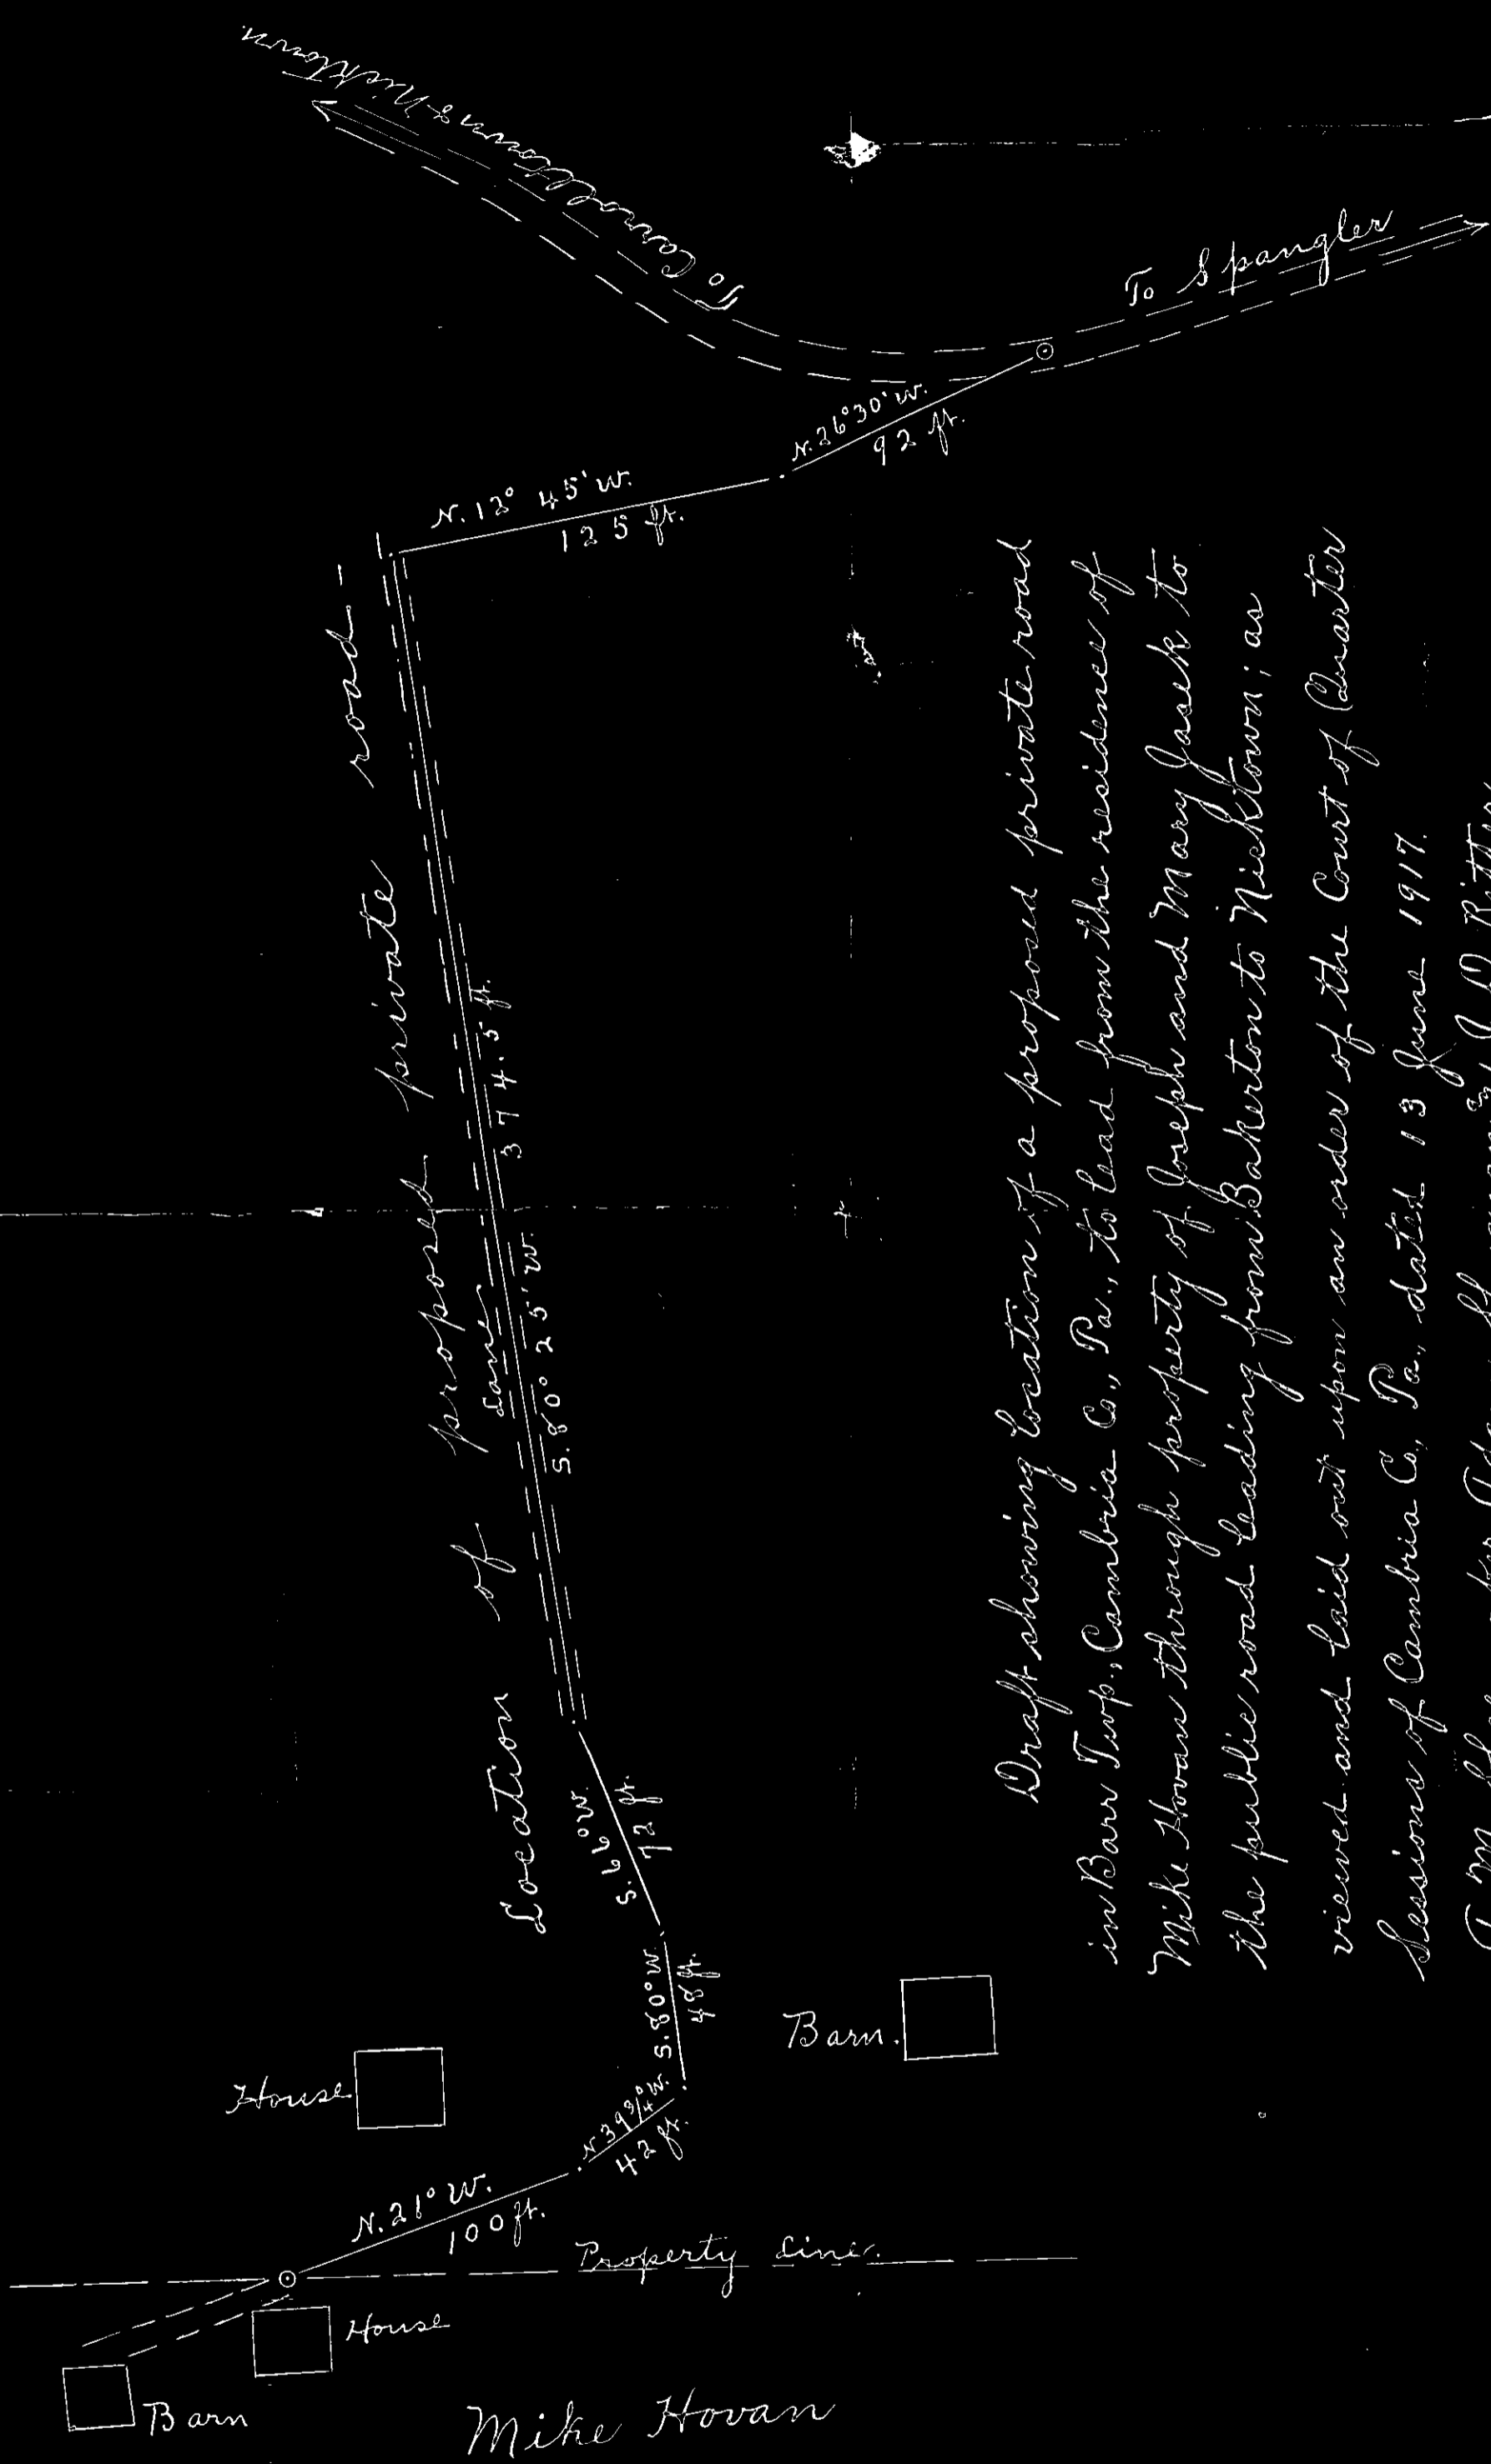 To Carrolltown & Nicktown.
To Spangler
N. 26° 30' W.
92 ft.
N. 12° 45' W.
125 ft.
Location of proposed private road -
Lane
S. 80° 25' W. 374.5 ft.
S. 66° W.
72 ft.
S. 80° W.
48 ft.
N 39 3/4° W.
42 ft.
N. 21° W.
100 ft.
House
Barn.
Property Line.
House
Barn
Mike Hovan
Draft showing location of a proposed private road
in Barr Twp., Cambria Co., Pa., to lead from the residence of
Mike Hovan through property of Joseph and Mary Jasek to
the public road leading from Bakerton to Nicktown; as
viewed and laid out upon an order of the Court of Quarter
Sessions of Cambria Co., Pa., dated 13 June 1917.